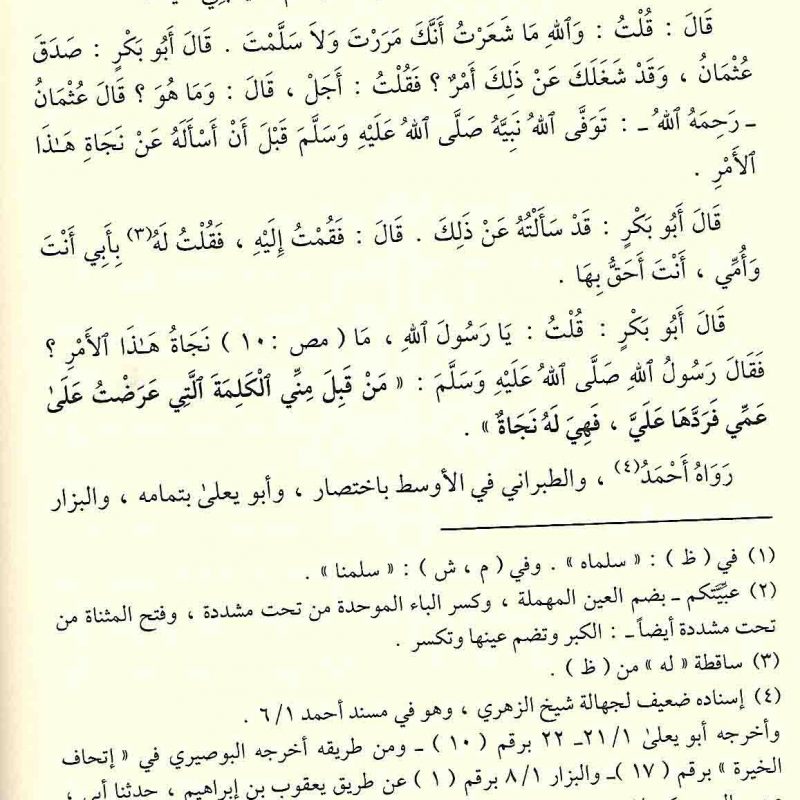 قَالَ : قُلْتُ : وَٱللهِ مَا شَعَرْتُ أَنَّكَ مَرَرْتَ وَلاَ سَلَّمْتَ . قَالَ أَبُو بَكْرٍ : صَدَقَ
عُثْمَانُ ، وَقَدْ شَغَلَكَ عَنْ ذَلِكَ أَمْرٌ ؟ فَقُلْتُ : أَجَلْ ، قَالَ : وَمَا هُوَ ؟ قَالَ عُثْمَانُ
ـ رَحِمَهُ ٱللهُ ـ : تَوَفَّى ٱللهُ نَبِيَّهُ صَلَّى ٱللهُ عَلَيْهِ وَسَلَّمَ قَبْلَ أَنْ أَسْأَلَهُ عَنْ نَجَاةِ هَـٰذَا
ٱلأَمْرِ .
قَالَ أَبُو بَكْرٍ : قَدْ سَأَلْتُهُ عَنْ ذَلِكَ . قَالَ : فَقُمْتُ إِلَيْهِ ، فَقُلْتُ لَهُ(٣) بِأَبِي أَنْتَ
وَأُمِّي ، أَنْتَ أَحَقُّ بِهَا .
قَالَ أَبُو بَكْرٍ : قُلْتُ : يَا رَسُولَ ٱللهِ ، مَا ( مص : ١٠ ) نَجَاةُ هَـٰذَا ٱلأَمْرِ ؟
فَقَالَ رَسُولُ ٱللهِ صَلَّى ٱللهُ عَلَيْهِ وَسَلَّمَ : « مَنْ قَبِلَ مِنِّي ٱلْكَلِمَةَ ٱلَّتِي عَرَضْتُ عَلَىٰ
عَمِّي فَرَدَّهَا عَلَيَّ ، فَهِيَ لَهُ نَجَاةٌ » .
رَوَاهُ أَحْمَدُ(٤) ، والطبراني في الأوسط باختصار ، وأبو يعلىٰ بتمامه ، والبزار
(١) في ( ظ ) : « سلماه » . وفي ( م ، ش ) : « سلمنا » .
(٢) عبِّيَّتكم ـ بضم العين المهملة ، وكسر الباء الموحدة من تحت مشددة ، وفتح المثناة من
تحت مشددة أيضاً ـ : الكبر وتضم عينها وتكسر .
(٣) ساقطة « له » من ( ظ ) .
(٤) إسناده ضعيف لجهالة شيخ الزهري ، وهو في مسند أحمد ٦/١ .
وأخرجه أبو يعلىٰ ٢١/١ـ ٢٢ برقم ( ١٠ ) ـ ومن طريقه أخرجه البوصيري في « إتحاف
الخيرة » برقم ( ١٧ ) ـ والبزار ٨/١ برقم ( ١ ) عن طريق يعقوب بن إبراهيم ، حدثنا أبي ،